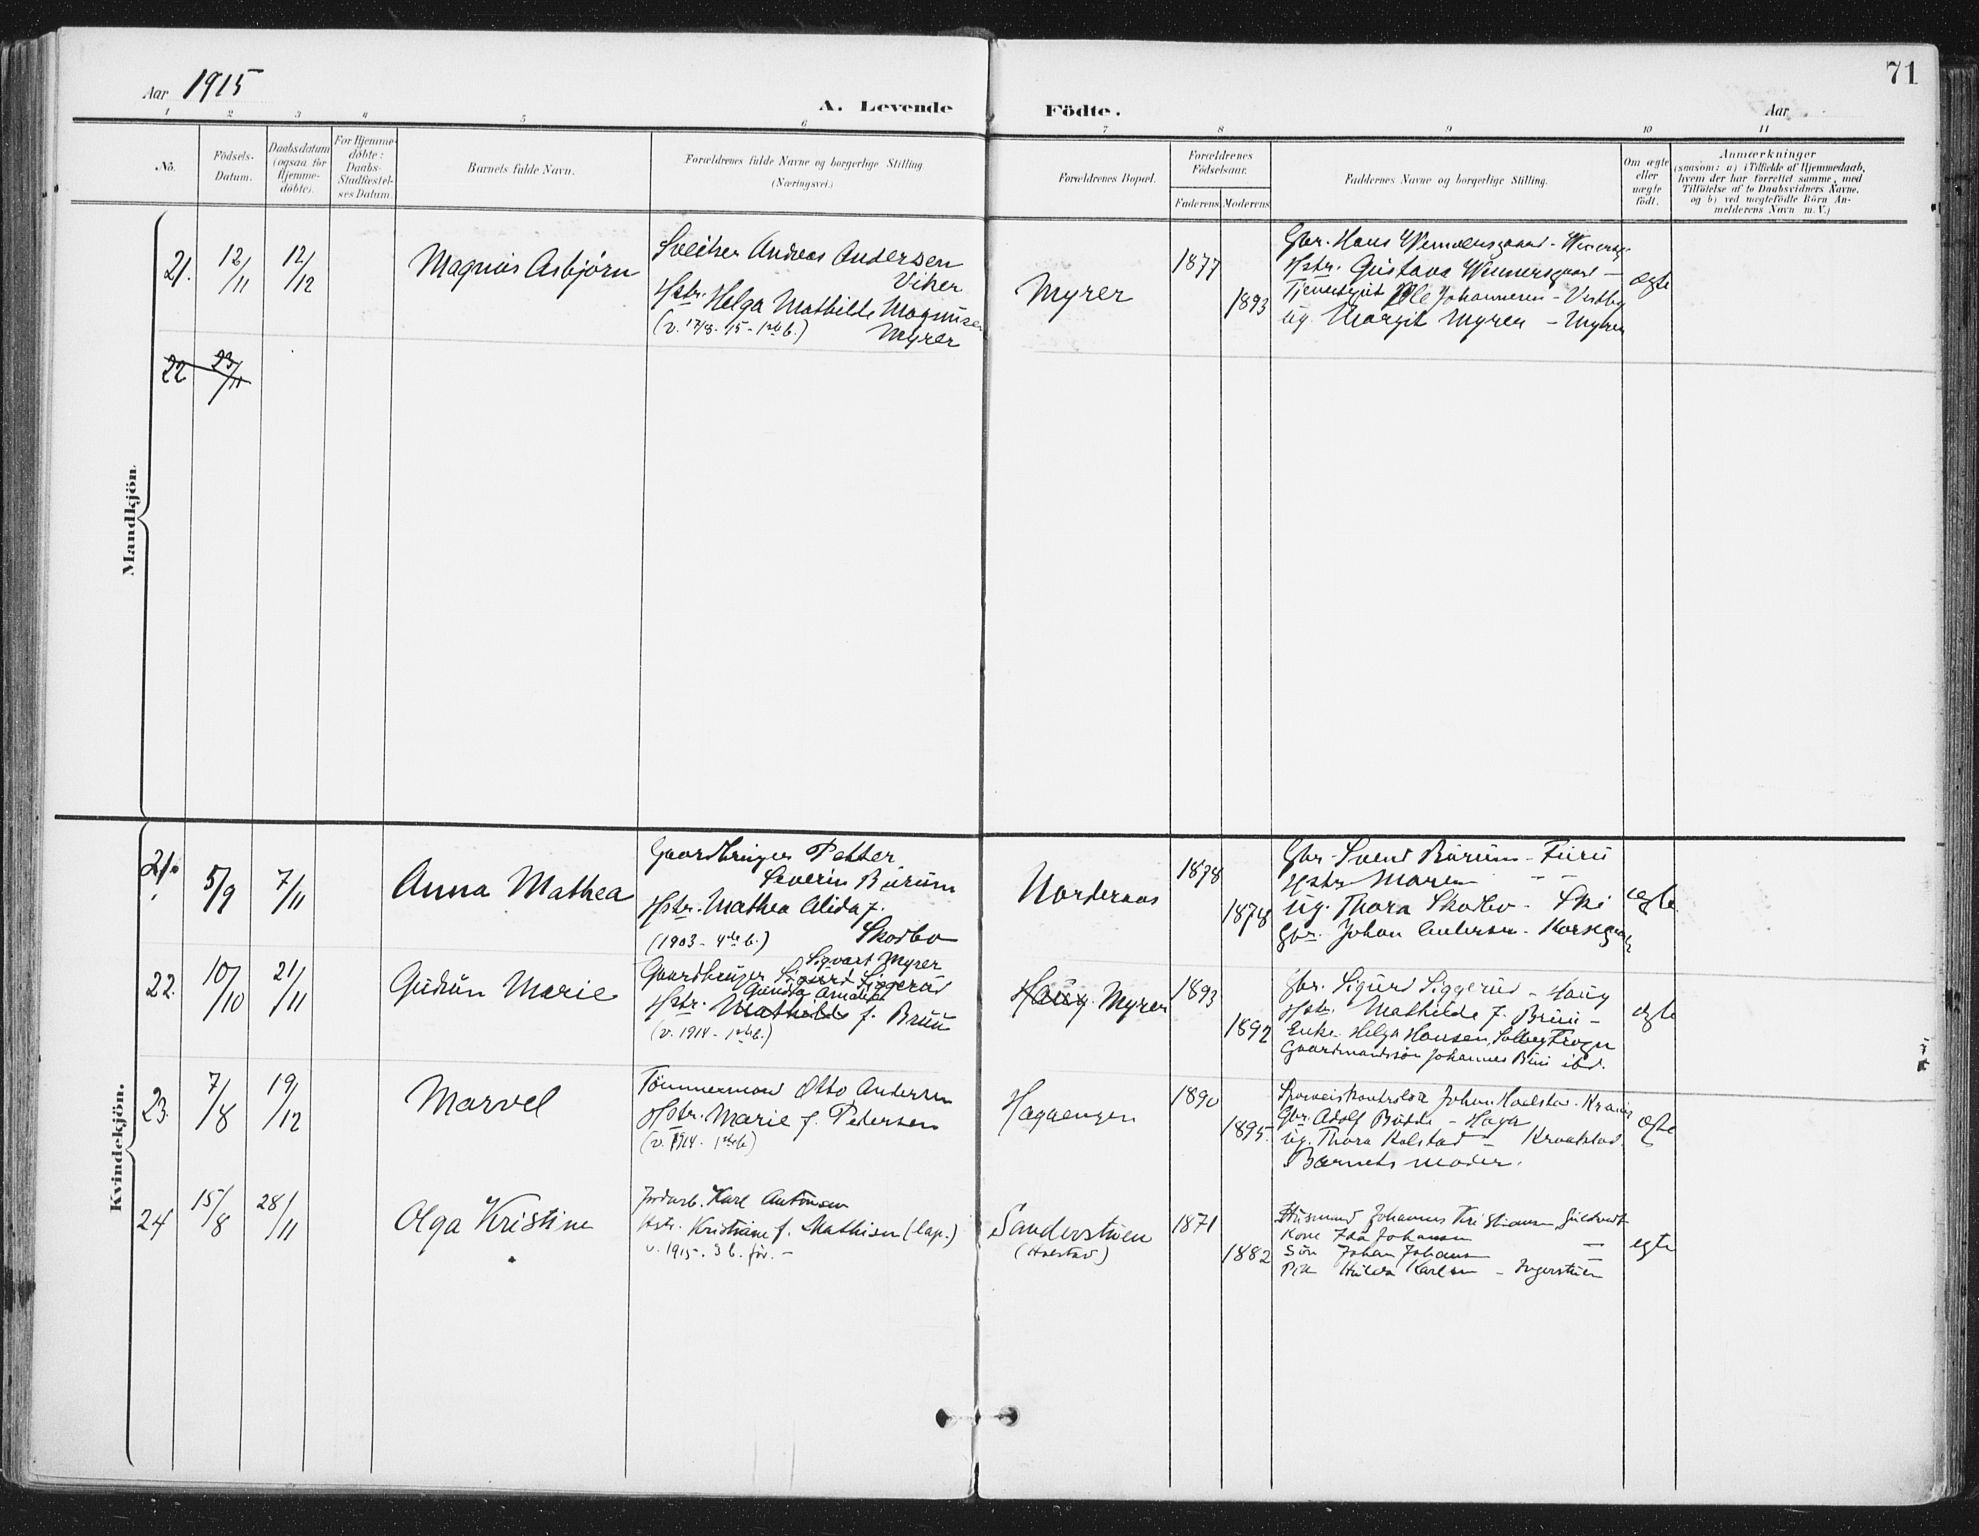 71
Aar 1915
A. Levende Födte.
Aar
1 2 3 4 5 6 7 8 9 10 11
No.
Födsels-
Datum.
Daabsdatum
(ogsaa for
Hjemme-
döbte).
For Hjemme-
döbte:
Daabs-
Stadfæstel-
ses Datum.
Barnets fulde Navn.
Forældrenes fulde Navne og borgerlige Stilling
(Næringsvei.)
Forældrenes Bopæl.
Forældrenes
Födselsaar.
Faderens Moderens
Faddernes Navne og borgerlige Stilling.
Om ægte
eller
uægte
födt.
Anmærkninger
(saasom: a) i Tilfælde af Hjemmedaab,
hvem der har forrettet samme, med
Tilföielse af to Daabsvidners Navne,
og b) ved uægtefödte Börn An-
melderens Navn m. V.)
Mandkjön.
21.
12/11
12/12
Magnus Asbjørn
Andreas Andersen
Viker
Hstr. Helga Mathilde Magnusen
(v. 17/8 -15 - 1ste b.) Myrer
Myrer
1877
1893
Gbr. Hans
Hstr. Gustava
Ole Johannesen - Vestby
Ug. Margit Myrer - Myrer
ægte
22 23/11
Kvindekjön.
21.
5/9
7/11
Anna Mathea
Gaardbruger Petter
Severin Burum
Hstr. Mathea Alida f.
(1903 - 4de b.) Skodbo
Nordenaas
1878
1878
Gbr. Svend Burum - Furu
Hstr. Maren - -
Ug. Thora Skodbo - Ski
Gbr. Johan Andersen -
ægte
22.
10/10
21/11
Gudrun Marie
Sigvart Myrer
Gaardbruger Sigurd Siggerud
Gunda Amalie
Hstr. Mathilde f. Bruu
(v. 1914 - 1ste b.)
Haug. Myrer
1893
1892
Gbr. Sigurd Siggerud - Haug
Hstr. Mathilde f. Bruu -
Enke Helga Hansen, Solberg Frogn
Gaardmandssøn Johannes Bru ibd.
ægte
23.
7/8
19/12
Marvel
Tømmermand Otto Andersen
Hstr. Marie f. Petersen
(v. 1914 - 1ste b)
Hagaengen
1890
1895.
Johan
Gbr. Adolf - Haga
Ug. Thora Kolstad - Kraakstad.
Barnets moder.
ægte
24
15/8
28/11
Olga Kristine
Jordarb. Karl Antonsen
Hstr. Kristiane f. Mathisen (Lap.)
v. 1915. 3 b. før. -
Sanderstuen
(Holstad)
1871
1882
Husmand Johannes Kristiansen
Kone Ida Johansen -
Søn Johan Johansen -
Pik Hulda Karlsen - Ingerstuen
egte